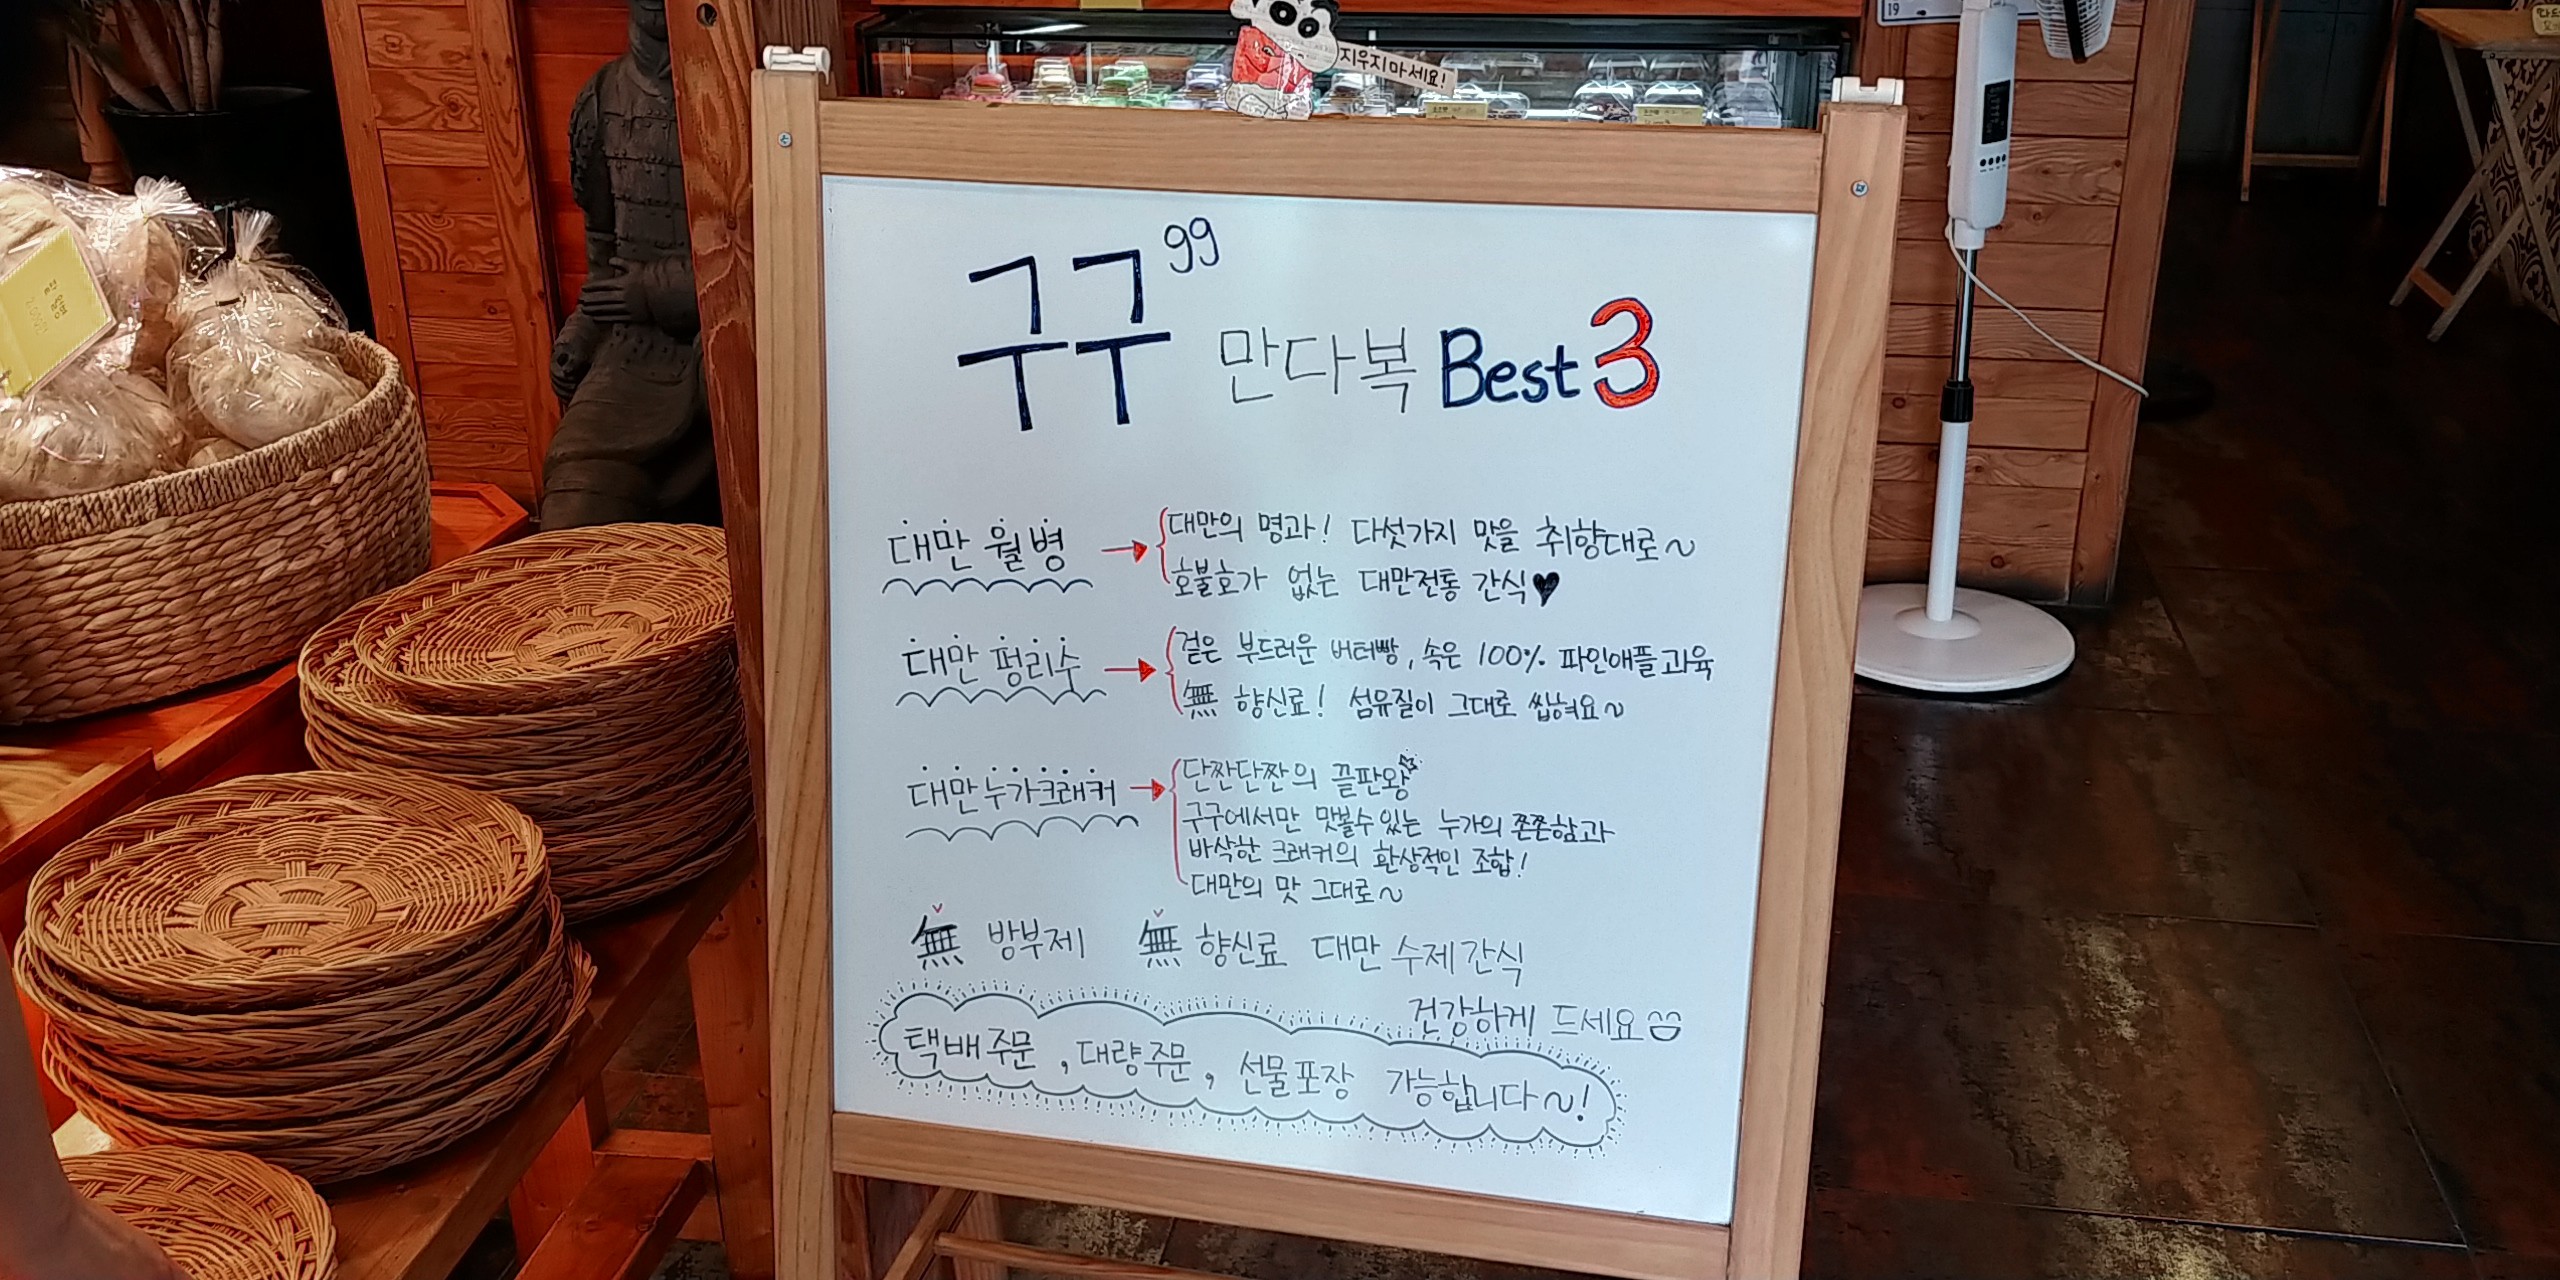 지우지마세요!
19
구구 99
만다복 Best 3
대만 월병 → 대만의 명과! 다섯가지 맛을 취향대로~
호불호가 없는 대만전통 간식♥
대만 펑리수 → 겉은 부드러운 버터빵, 속은 100% 파인애플과육
無 향신료! 섬유질이 그대로 씹혀요~
대만누가크래커 → 단짠단짠의 끝판왕
구구에서만 맛볼수있는 누가의 쫀쫀함과
바삭한 크래커의 환상적인 조합!
대만의 맛 그대로~
無 방부제 無 향신료 대만 수제간식
건강하게 드세요
택배주문, 대량주문, 선물포장 가능합니다~!